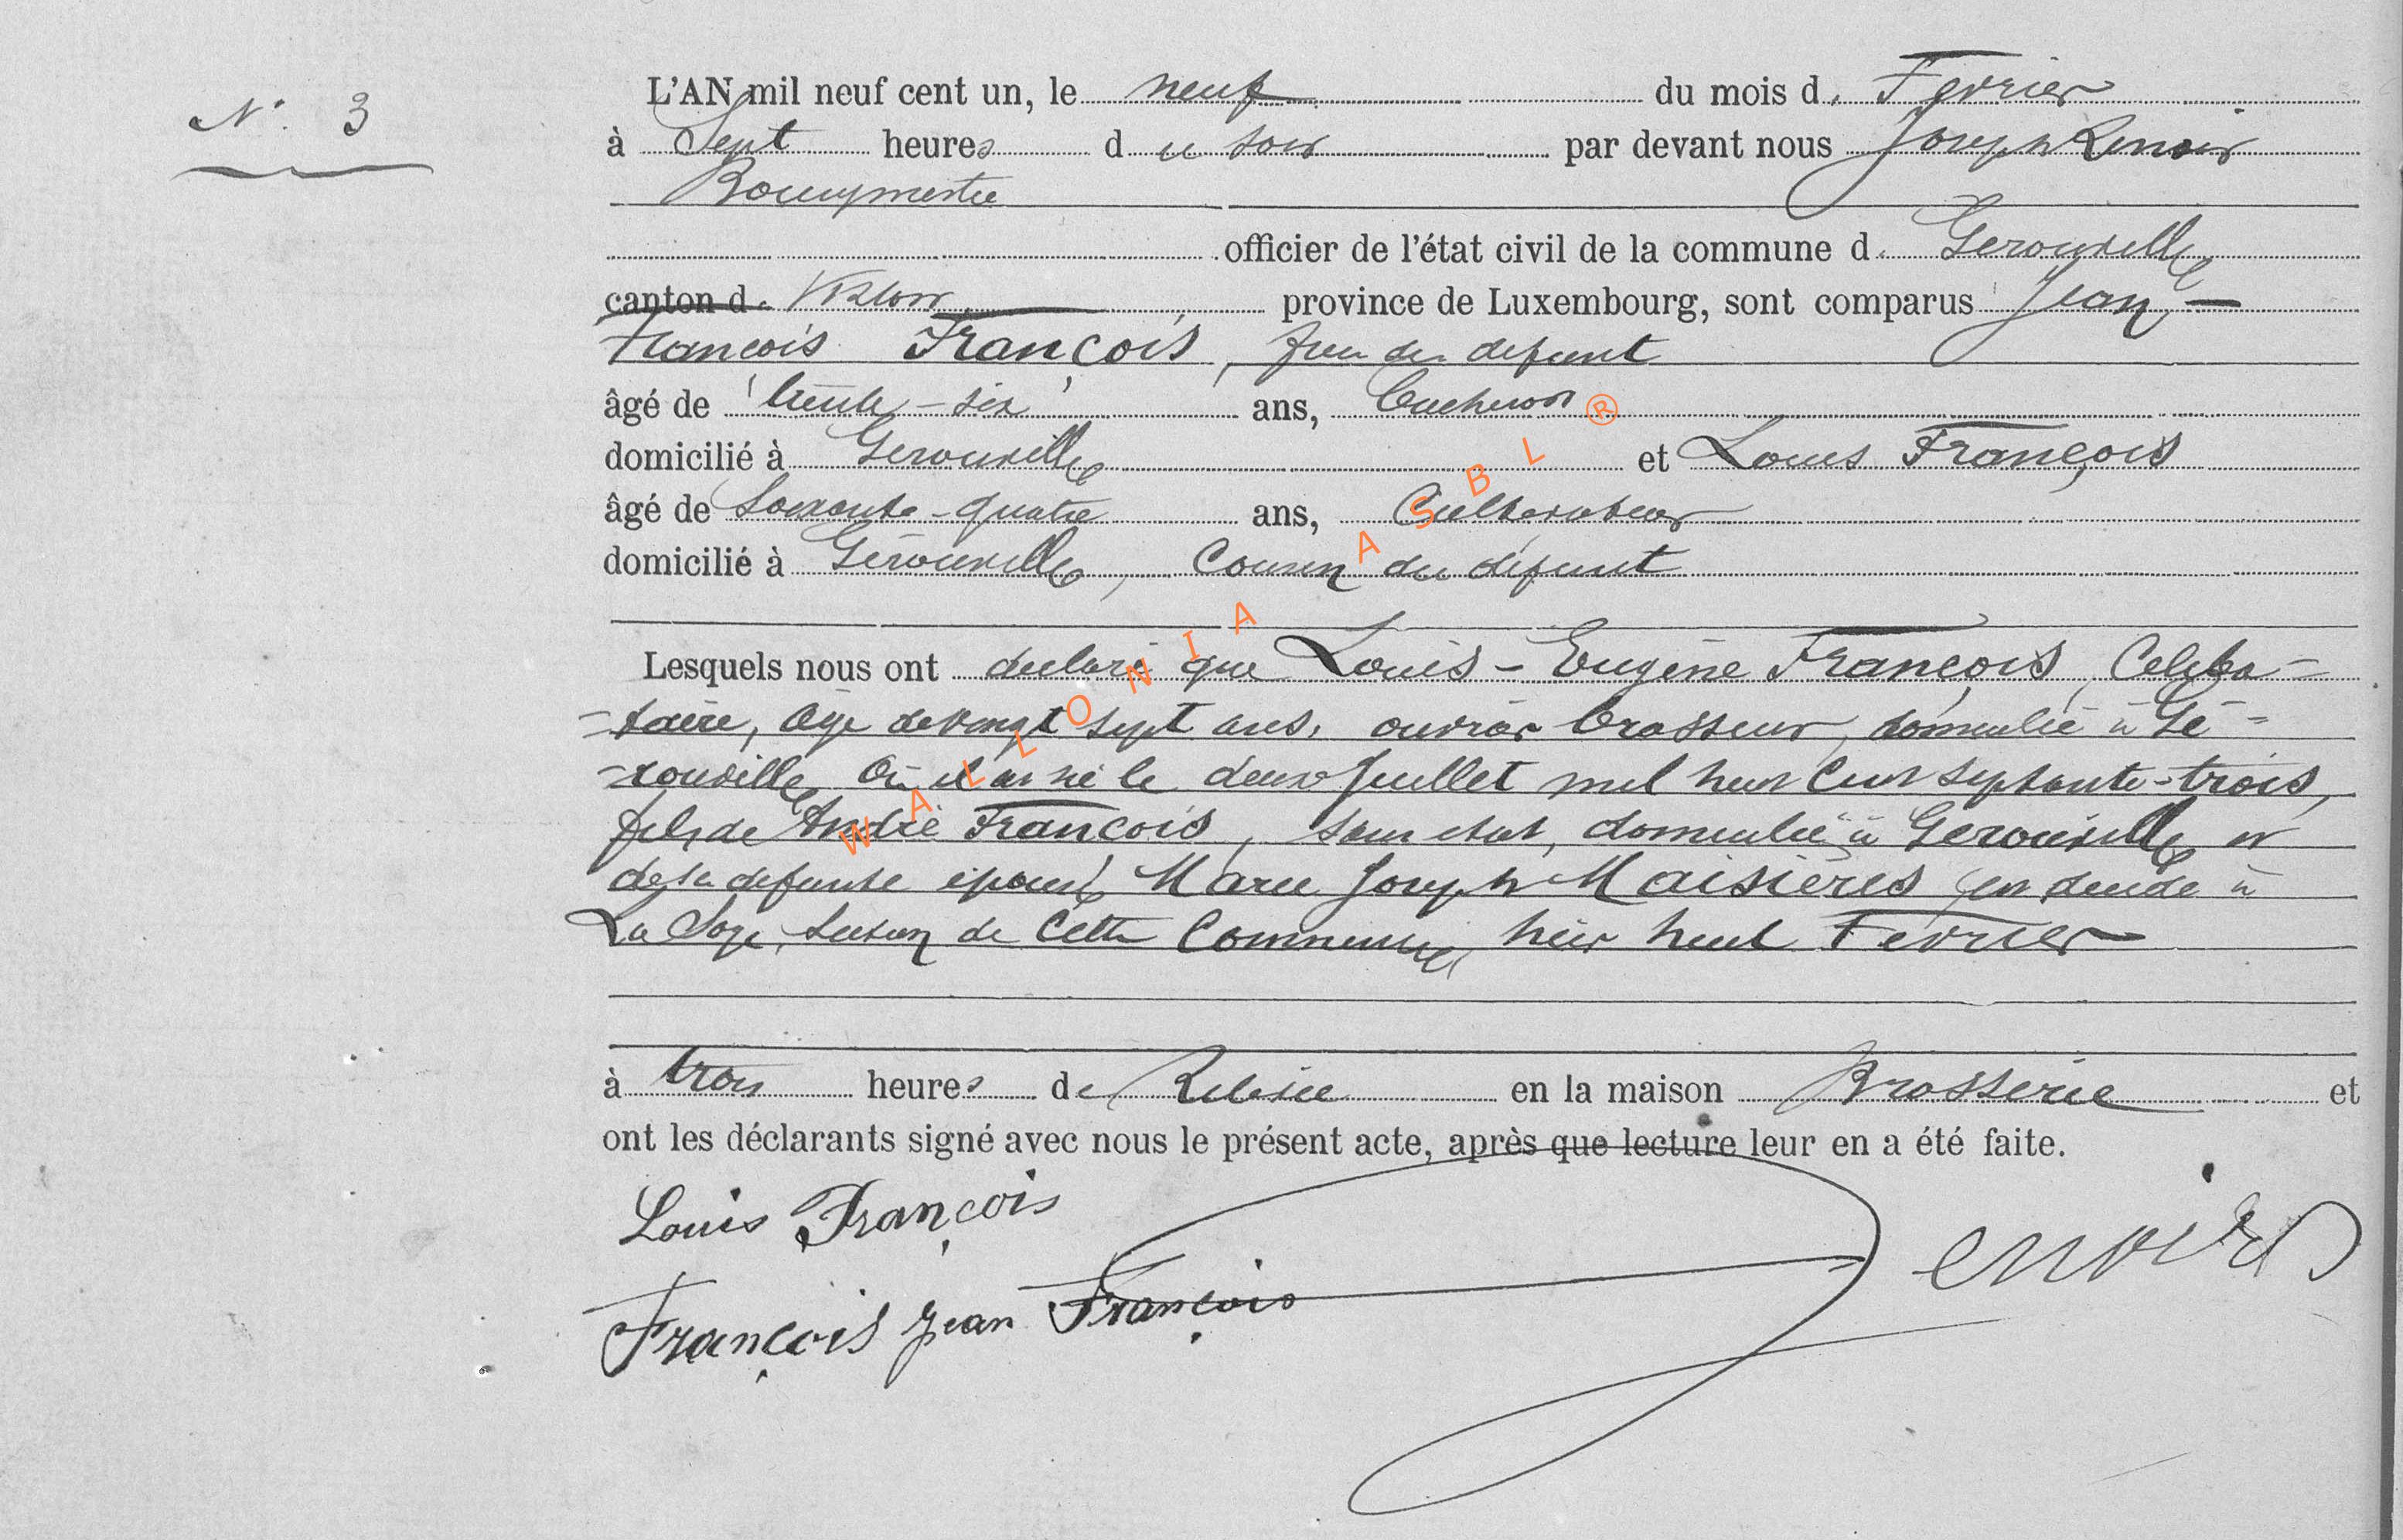 N° 3
L'AN mil neuf cent un, le neuf du mois de Fevrier
à Sept heures du soir par devant nous Joseph Renoir
Bourgmestre
officier de l'état civil de la commune de Gerouville
canton de Virton province de Luxembourg, sont comparus Jean-
François François, frere du defunt
âgé de trente-six ans,
domicilié à Gerouville et Louis François
âgé de Soixante-quatre ans, Cultivateur
domicilié à Gérouville, Cousin du défunt
Lesquels nous ont declaré que Louis-Eugène François, Céliba-
-taire, âgé de vingt sept ans, ouvrier brasseur, domicilié à Gé-
-rouville, Où il est né le deux Juillet mil huit Cent septante-trois,
fils de André François, sans état, domicilié à Gerouville et
de sa défunte épouse Marie Joseph Maisières est décédé à
La Soye, Section de Cette Commune, hier huit Fevrier
à trois heures de Relevée en la maison Brasserie et
ont les déclarants signé avec nous le présent acte, après que lecture leur en a été faite.
Louis François
Renoir
François Jean François
WALLONIA ASBL ®